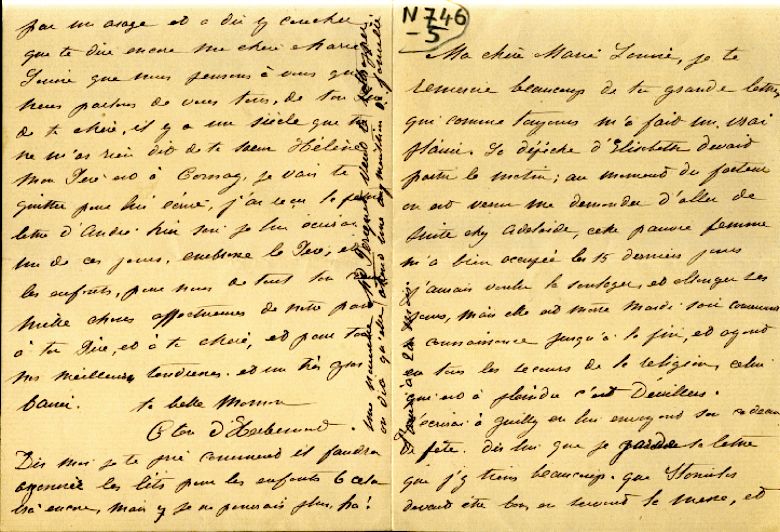 N 746
-5
Ma chère Marie Louise, je te
remercie beaucoup de ta grande lettre
qui comme toujours m'a fait un vrai
plaisir. La dépêche d'Elisabeth devait
partir le matin; au moment du facteur
on est venu me demander d'aller de
suite chez Adelaide, cette pauvre femme
m'a bien occupée les 15 derniers jours
j'aurais voulu la soulager, et allonger ses
jours, mais elle est morte Mardi soir
connaissance jusqu'à la fin, et ayant
eu tous les secours de la religion, celui
qui est à plaindre c'est Devillers.
J'écrirai à Guilly en lui envoyant son cadeau
de fête. dis lui que je garde sa lettre
que j'y tiens beaucoup. que Stanislas
devait être bon en servant la messe, et
par un orage et a dû y coucher
que te dire encore ma chère Marie
Louise que nous pensons à vous que
nous parlons de vous tous, de ton
de te chéri, il y a un siècle que tu
ne m'as rien dit de ta soeur Hélène
Mon Père est à je vais te
quitter pour lui écrire, j'ai reçu la
lettre d'André hier soir je lui écrirai
un de ces jours, embrasse le Père, et
les enfants, pour nous de tout
mille choses affectueuses de notre part
à ton Père, et à te chéri, et pour toi
nos meilleures tendresses. et un très gros
baiser. ta belle Maman
Ctesse d'Herbemont.
Dis moi je te prie comment il faudra
les lits pour les enfants 6 cela
ira encore, mais je ne pourrais plus, ha!
on dit qu'elle attend une augmentation de famille